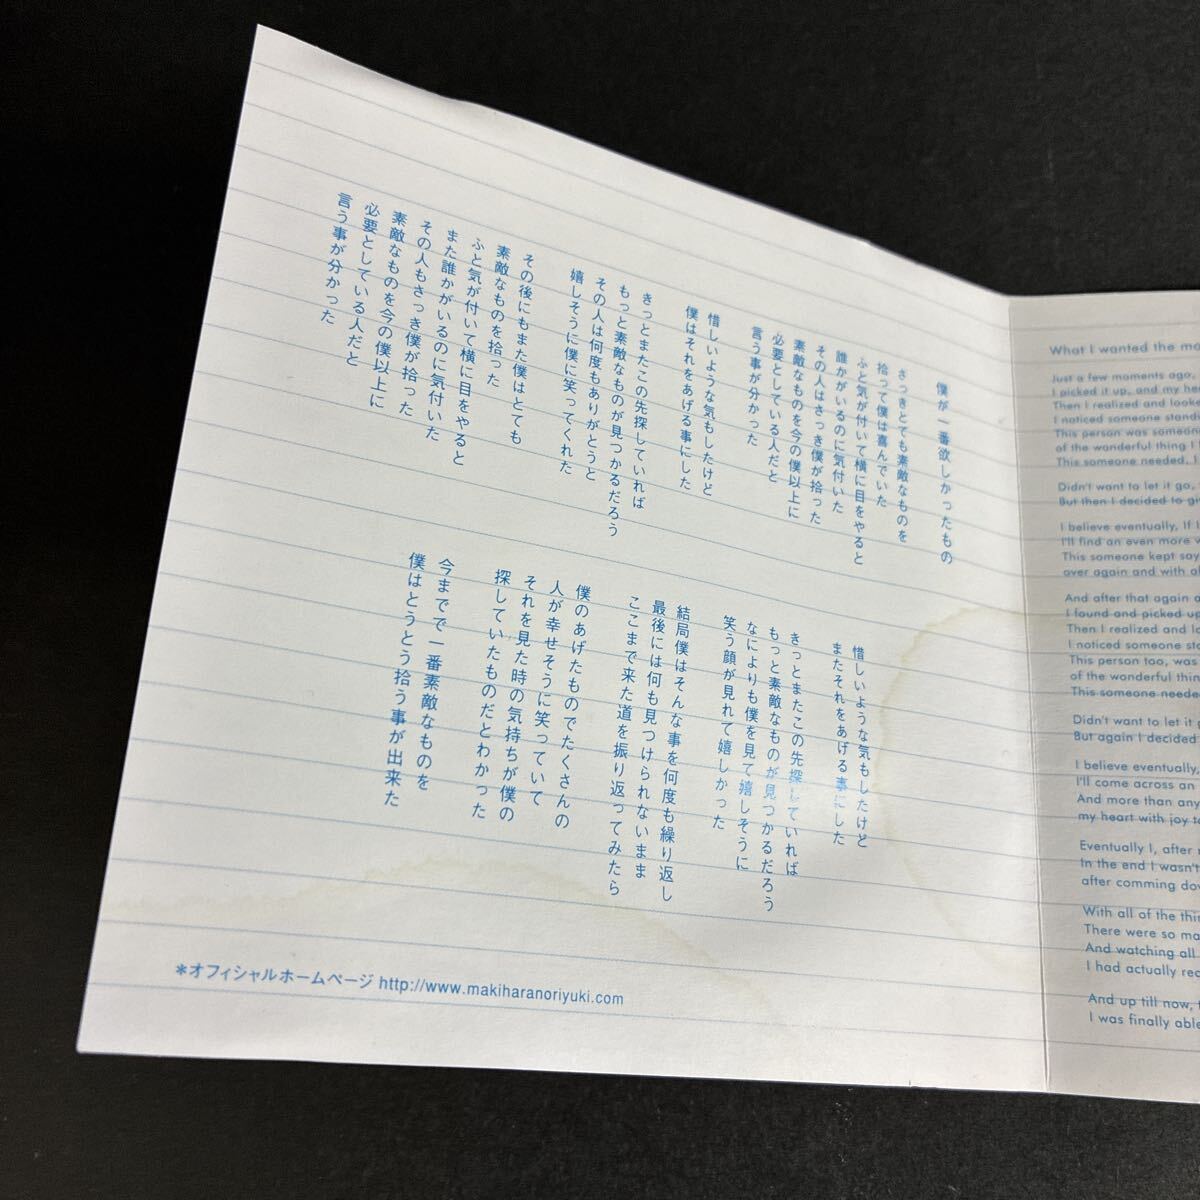 僕が一番欲しかったもの
さっきとても素敵なものを
拾って僕は喜んでいた
ふと気が付いて横に目をやると
誰かがいるのに気付いた
その人はさっき僕が拾った
素敵なものを今の僕以上に
必要としている人だと
言う事が分かった
惜しいような気もしたけど
僕はそれをあげる事にした
きっとまたこの先探していれば
もっと素敵なものが見つかるだろう
その人は何度もありがとうと
嬉しそうに僕に笑ってくれた
その後にもまた僕はとても
素敵なものを拾った
ふと気が付いて横に目をやると
また誰かがいるのに気付いた
その人もさっき僕が拾った
素敵なものを今の僕以上に
必要としている人だと
言う事が分かった
惜しいような気もしたけど
またそれをあげる事にした
きっとまたこの先探していれば
もっと素敵なものが見つかるだろう
なによりも僕を見て嬉しそうに
笑う顔が見れて嬉しかった
結局僕はそんな事を何度も繰り返し
最後には何も見つけられないまま
ここまで来た道を振り返ってみたら
僕のあげたものでたくさんの
人が幸せそうに笑っていて
それを見た時の気持ちが僕の
探していたものだとわかった
今までで一番素敵なものを
僕はとうとう拾う事が出来た
*オフィシャルホームページ http://www.makiharanoriyuki.com
What I wanted the mo
Just a few moments ago,
I picked it up, and my hea
Then I realized and looke
I noticed someone stand
This person was someon
of the wonderful thing I
This someone needed, I
Didn't want to let it go,
But then I decided to gi
I believe eventually, If I
I'll find an even more w
This someone kept say
over again and with al
And after that again a
I found and picked up
Then I realized and lo
I noticed someone sta
This person too, was
of the wonderful thin
This someone neede
Didn't want to let it g
But again I decided
I believe eventually,
I'll come across an
And more than any
my heart with joy to
Eventually I, after r
In the end I wasn't
after comming dow
With all of the thin
There were so ma
And watching all
I had actually rea
And up till now, t
I was finally able